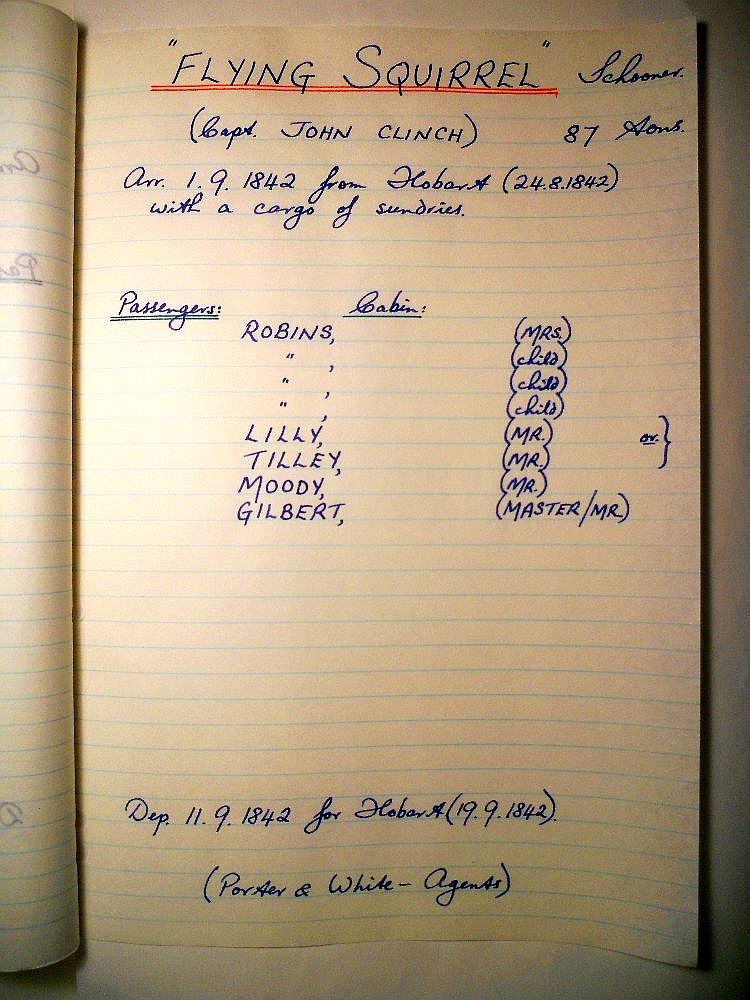 "FLYING SQUIRREL" Schooner.
(Capt. JOHN CLINCH) 87 tons.
Arr. 1.9.1842 from Hobart (24.8.1842)
with a cargo of sundries.
Passengers: Cabin:
ROBINS, (MRS.)
" , (child)
" , (child)
" , (child)
LILLY, (MR.) or. }
TILLEY, (MR.)
MOODY, (MR.)
GILBERT, (MASTER/MR.)
Dep. 11.9.1842 for Hobart (19.9.1842).
(Porter & White - Agents)